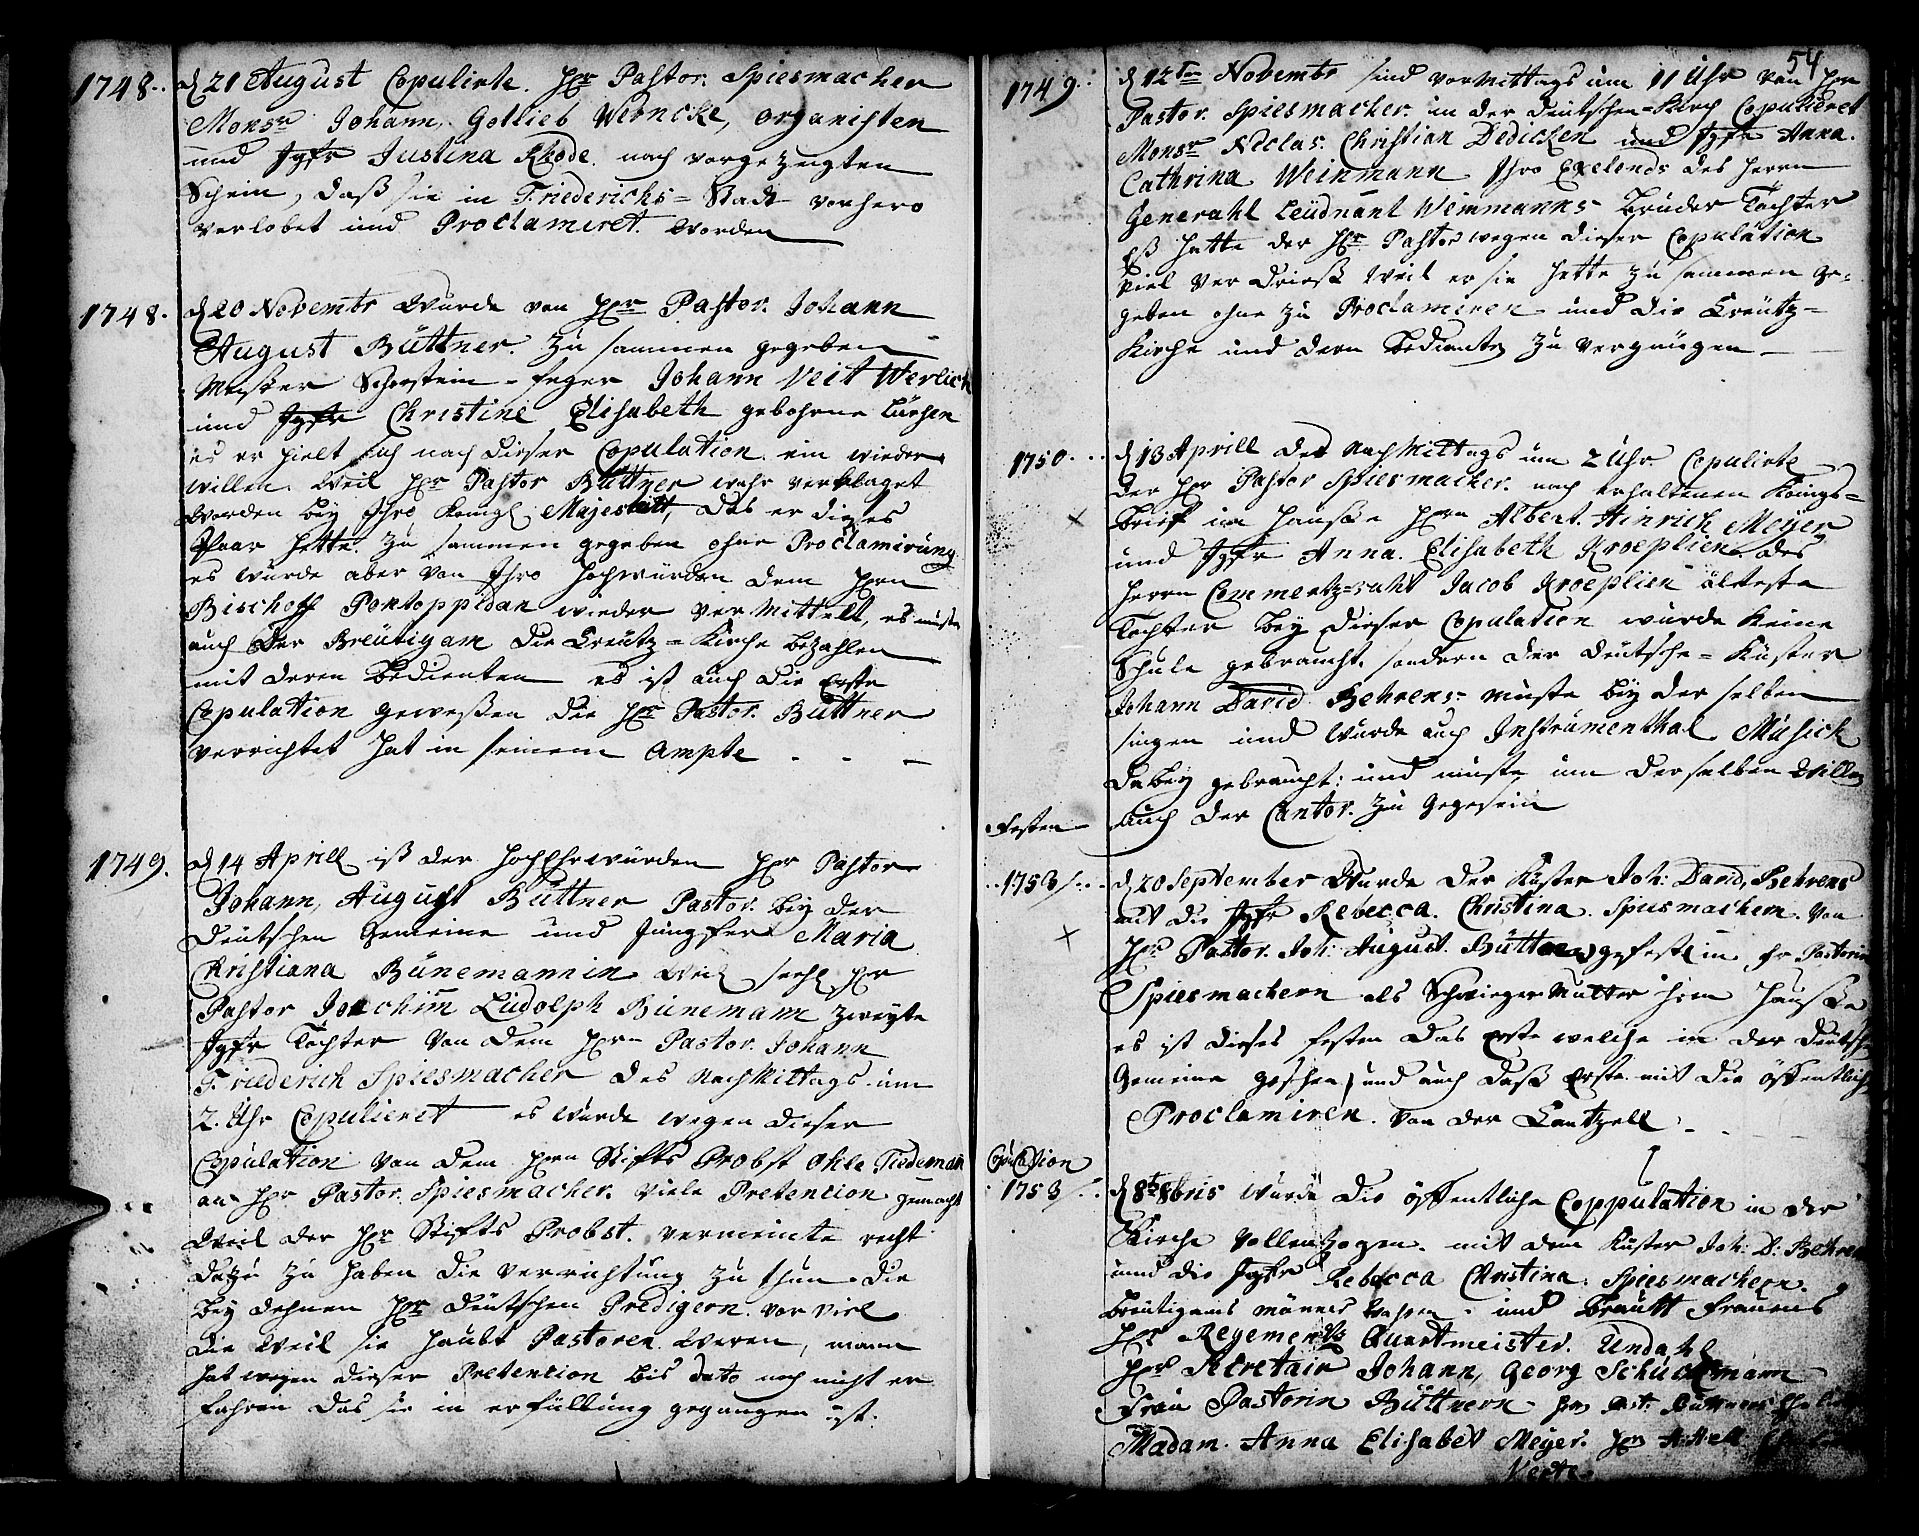 1748. d 21 August Copulirte Hr Pastor. Spiesmacher
Monsr Johann, Gotlieb Werncke, organisten
und Jgfr Justina Rhode nach vorgezeugten
Schein, daß sie in Friederichs=Stadt vorhero
verlobet und Proclamiret worden
1748. d 20 Novembr wurde von Hrn Pastor. Johann
August Büttner. zu sammen gegeben
Meister Schorstein=feger Johann Veit Werlich
und Jgfr Christine Elisabeth gebohrne Lürsen
es er hielt sich nach dieser Copulation ein wieder
willen. weil Hr Pastor Büttner wahr verklaget
worden bey Ihro Königl Majestätt, das er dieses
Paar hette zu sammen gegeben ohne Proclamirung
es wurde aber von Ihro Hochwürden dem Hrn
Bischoff Pontoppidan wieder vermittelt, es muste
auch der Breutigam die Creutz=Kirche bezahlen
mit deren bedienten es ist auch die Erste
Copulation geweßen die Hr Pastor. Büttner
verrichtet hat in seinem Ampte
1749. d 14 Aprill ist der HochEhrwürden Hr Pastor
Johann, August Büttner Pastor. bey der
Deutschen Gemeine und Jungfer Maria
Christiana Bünemannin weil seehl Hr
Pastor Joachim Ludolph Bünemann zweyte
Jgfr Tochter von dem Hrn Pastor. Johann
Friederich Spiesmacher des NachMittags um
2. Uhr Copulieret es wurde wegen dieser
Copulation von dem Hrn Stiffts Probst Ohle Tiedeman
an Hr Pastor. Spiesmacher. viele Pretention gemacht
weil der Hr Stiffts Probst. vermeinte recht
dazu zu haben die verrichtung zu thun die
bey dehnen Hr deutschen Predigern vorviel
die weil sie Haubt Pastoren weren, mann
hat wegen dieser Pretention bis dato noch nicht er
fahren das sie in erfüllung gegangen ist.
54
1749. d 12ten Novembr sind vorMittags um 11 Uhr von Hrn
Pastor. Spiesmacher. in der deutschen=Kirch Copulieret
Monsr Niclas. Christian Dedicken und Jgfr Anna.
Cathrina Weinmann Ihro Exelends des Herrn
Generahl Leudnant Weinmanns Bruder Tochter
Eß hatte der Hr Pastor wegen dieser Copulation
viel verdrieß weil er sie hette zu sammen ge=
geben ohne zu Proclamiren und die Creutz=
Kirche und dern bediente zu vergnügen
1750. d 13 Aprill des NachMittags um 2 Uhr Copulirte
der Hr Pastor Spiesmacher. nach erhaltenen Königs=
brief im Hauße Hrn Albert. Hinrich Meyer
und Jgfr Anna. Elisabeth Kroeplien des
Herrn Commertz=raht Jacob Kroeplien älteste
Tochter bey dieser Copulation wurde keine
Schule gebraucht. sondern der deutsche=Küster
Johann David Behrens muste bey der selben
singen und wurde auch Instrumenthal Musick
dabey gebraucht: und muste um derselben willen
auch der Cantor. zu gegesein
Festen
1753/. d 20 September wurde der Küster Joh: David, Behrens
mit die Jgfr Rebecca. Christina. Spiesmachern. von
Hr Pastor. Joh: August. Büttner gefest in Fr Pastorin
Spiesmachern als SchwiegerMutter ihren Hauße
es ist dieses festen das Erste welche in der deutsche
Gemeine geschen, und auch daß Erste mit die öffentlich
Proclamiren. von der Cantzell
Copulation
1753/. d 8t 8bris wurde die öffentliche Coppulation in der
Kirche vollentzogen. mit dem Küster Joh: D: Behrens
und die Jgfr Rebecca Christina. Spiesmachern.
Breutigams männer wahren und Brautt Frauens
Hr Regements Quartmeister. Undahl
Hr Secretair Johann, Georg Schuckmann
Frau Pastorin Büttnern
Madam. Anna Elisabet Meyer.
Verte.